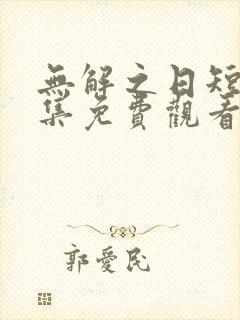 無解之日短
集免費觀看
郭愛民